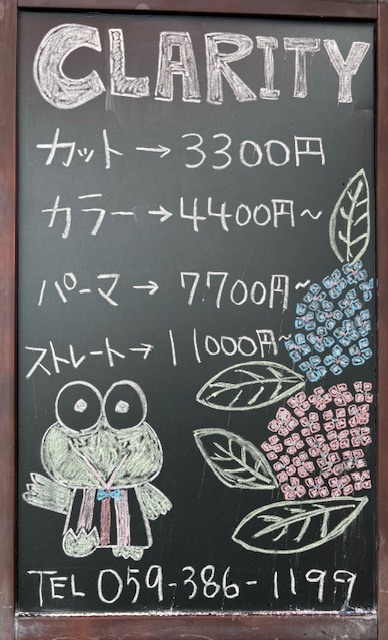 CLARITY
カット→3300円
カラー→4400円~
パーマ→7700円~
ストレート→11000円~
TEL 059-386-1199